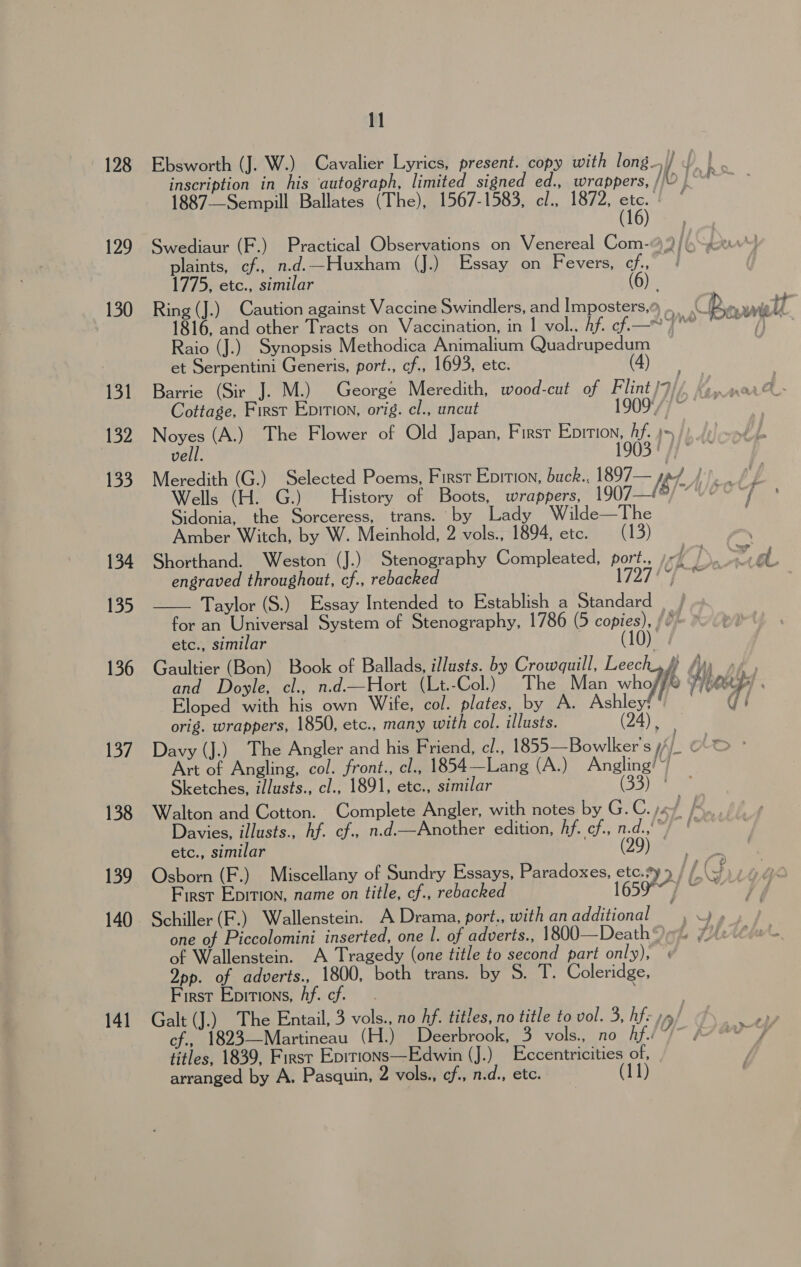 11
128 Ebsworth (J. W.) Cavalier Lyrics, present. copy with long
inscription in his autograph, limited signed ed., wrappers,
1887—Sempill Ballates (The), 1567-1583, cl., 1872, etc.
(16)
129 Swediaur (F.) Practical Observations on Venereal Com-
plaints, cf., n.d.—Huxham (J.) Essay on Fevers, cf.,
1775, etc., similar (6)
130 Ring (J.) Caution against Vaccine Swindlers, and Imposters,
1816, and other Tracts on Vaccination, in 1 vol., hf. cf.—
Raio (J.) Synopsis Methodica Animalium Quadrupedum
et Serpentini Generis, port., cf., 1693, etc. (4)
131 Barrie (Sir J. M.) George Meredith, wood-cut of Flint
Cottage, First Edition, orig. cl., uncut 1909
132 Noyes (A.) The Flower of Old Japan, First Edition, hf.
vell. 1903
133 Meredith (G.) Selected Poems, First Edition, buck., 1897—
Wells (H. G.) History of Boots, wrappers, 1907—
Sidonia, the Sorceress, trans. by Lady Wilde—The
Amber Witch, by W. Meinhold, 2 vols., 1894, etc. (13)
134 Shorthand. Weston (J.) Stenography Compleated, port.,
engraved throughout, cf., rebacked 1727
135 —— Taylor (S.) Essay Intended to Establish a Standard
for an Universal System of Stenography, 1786 (5 copies),
etc., similar (10)
136 Gaultier (Bon) Book of Ballads, illusts. by Crowquill, Leech
and Doyle, cl., n.d.—Hort (Lt.-Col.) The Man who
Eloped with his own Wife, col. plates, by A. Ashley,
orig. wrappers, 1850, etc., many with col. illusts. (24)
137 Davy (J.) The Angler and his Friend, cl., 1855—Bowlker's
Art of Angling, col. front., cl., 1854—Lang (A.) Angling
Sketches, illusts., cl., 1891, etc., similar (33)
138 Walton and Cotton. Complete Angler, with notes by G. C.
Davies, illusts., hf. cf., n.d.—Another edition, hf. cf., n.d.,
etc., similar (29)
139 Osborn (F.) Miscellany of Sundry Essays, Paradoxes, etc.,
First Edition, name on title, cf., rebacked 1659
140 Schiller (F.) Wallenstein. A Drama, port., with an additional
one of Piccolomini inserted, one l. of adverts., 1800—Death
of Wallenstein. A Tragedy (one title to second part only),
2pp. of adverts., 1800, both trans. by S. T. Coleridge,
First Editions, hf. cf.
141 Galt (J.) The Entail, 3 vols., no hf. titles, no title to vol. 3, hf.
cf., 1823—Martineau (H.) Deerbrook, 3 vols., no hf.
titles, 1839, First Editions—Edwin (J.) Eccentricities of,
arranged by A. Pasquin, 2 vols., cf., n.d., etc. (11)